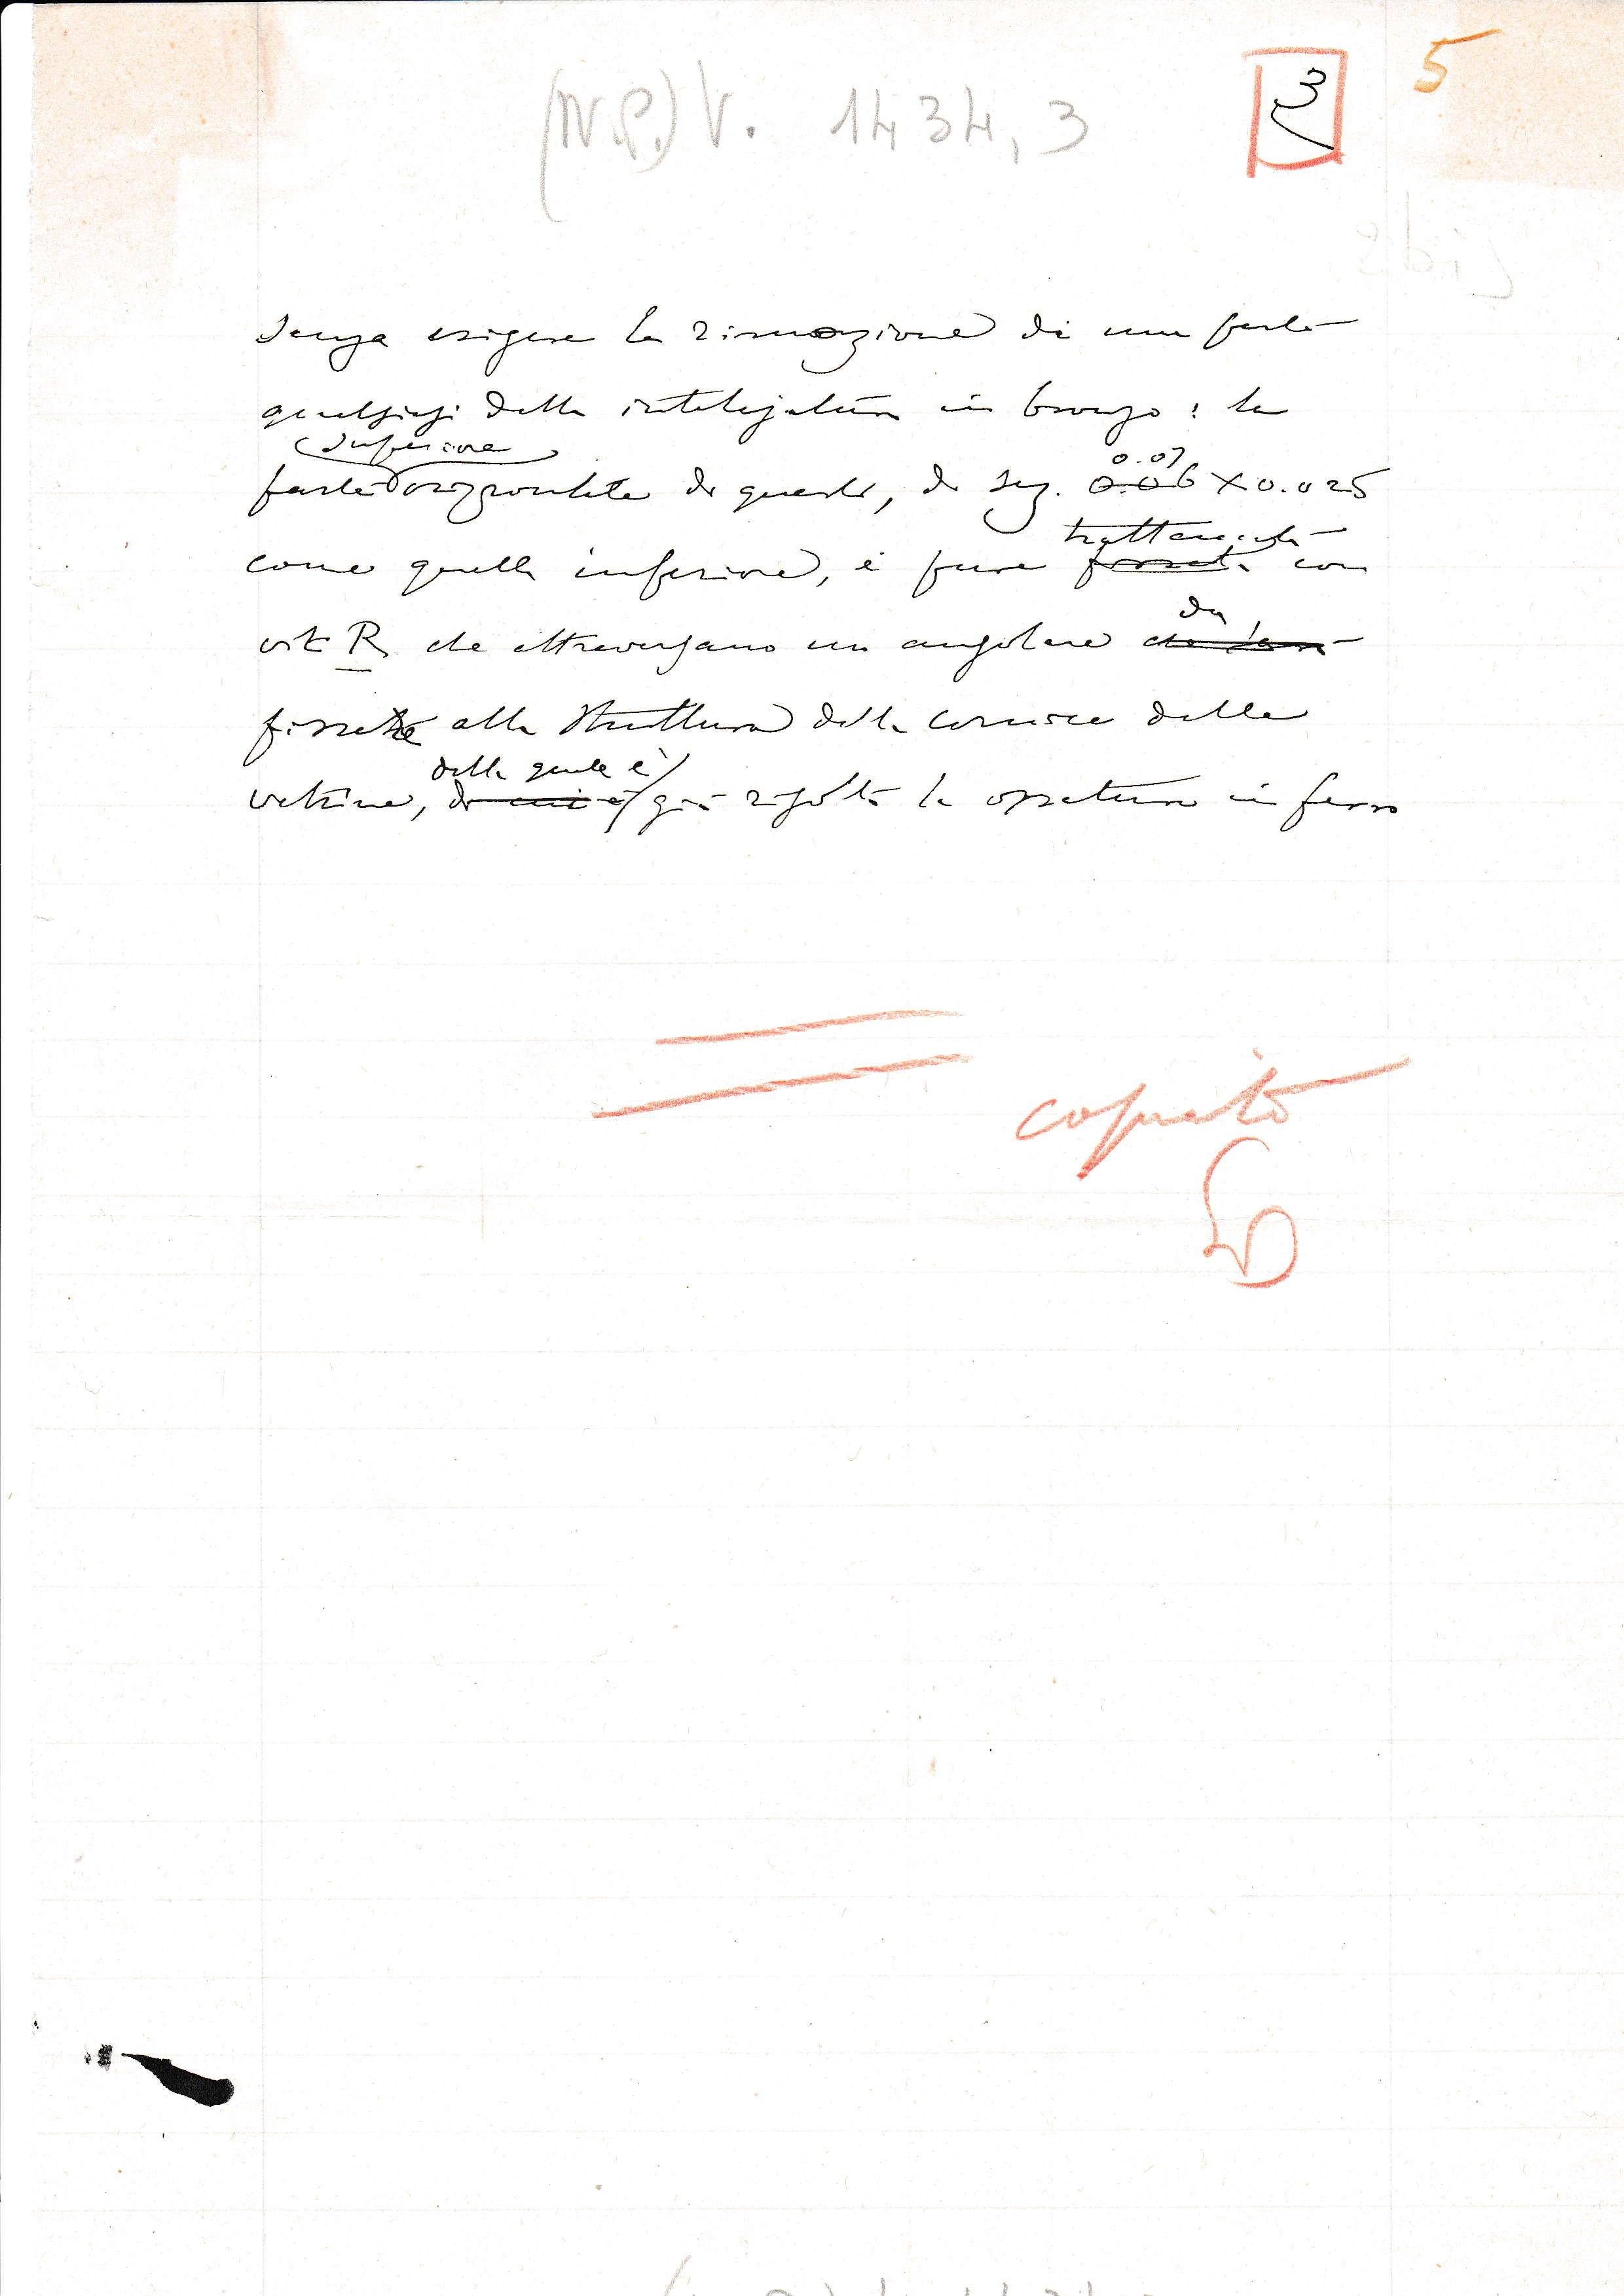 (N.P.) V. 1434,3
3
5
2bis
senza esigere la rimozione di una parte
qualsiasi della intelajatura in bronzo: la
superiore
parte orizzontale di questa, di sez. 0.06 x 0.025
0.07
come quella inferiore, è pure fissata con
trattenuta
viti R che attraversano un angolare
da
fissarsi alla struttura della cornice della
vetrina, di cui è già risolta la ossatura in ferro
della quale è
copiato